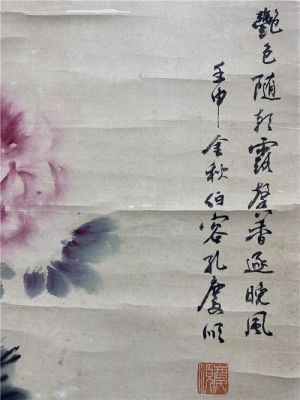 艷色随朝露馨香逐晚風
壬申金秋伯容孔慶順